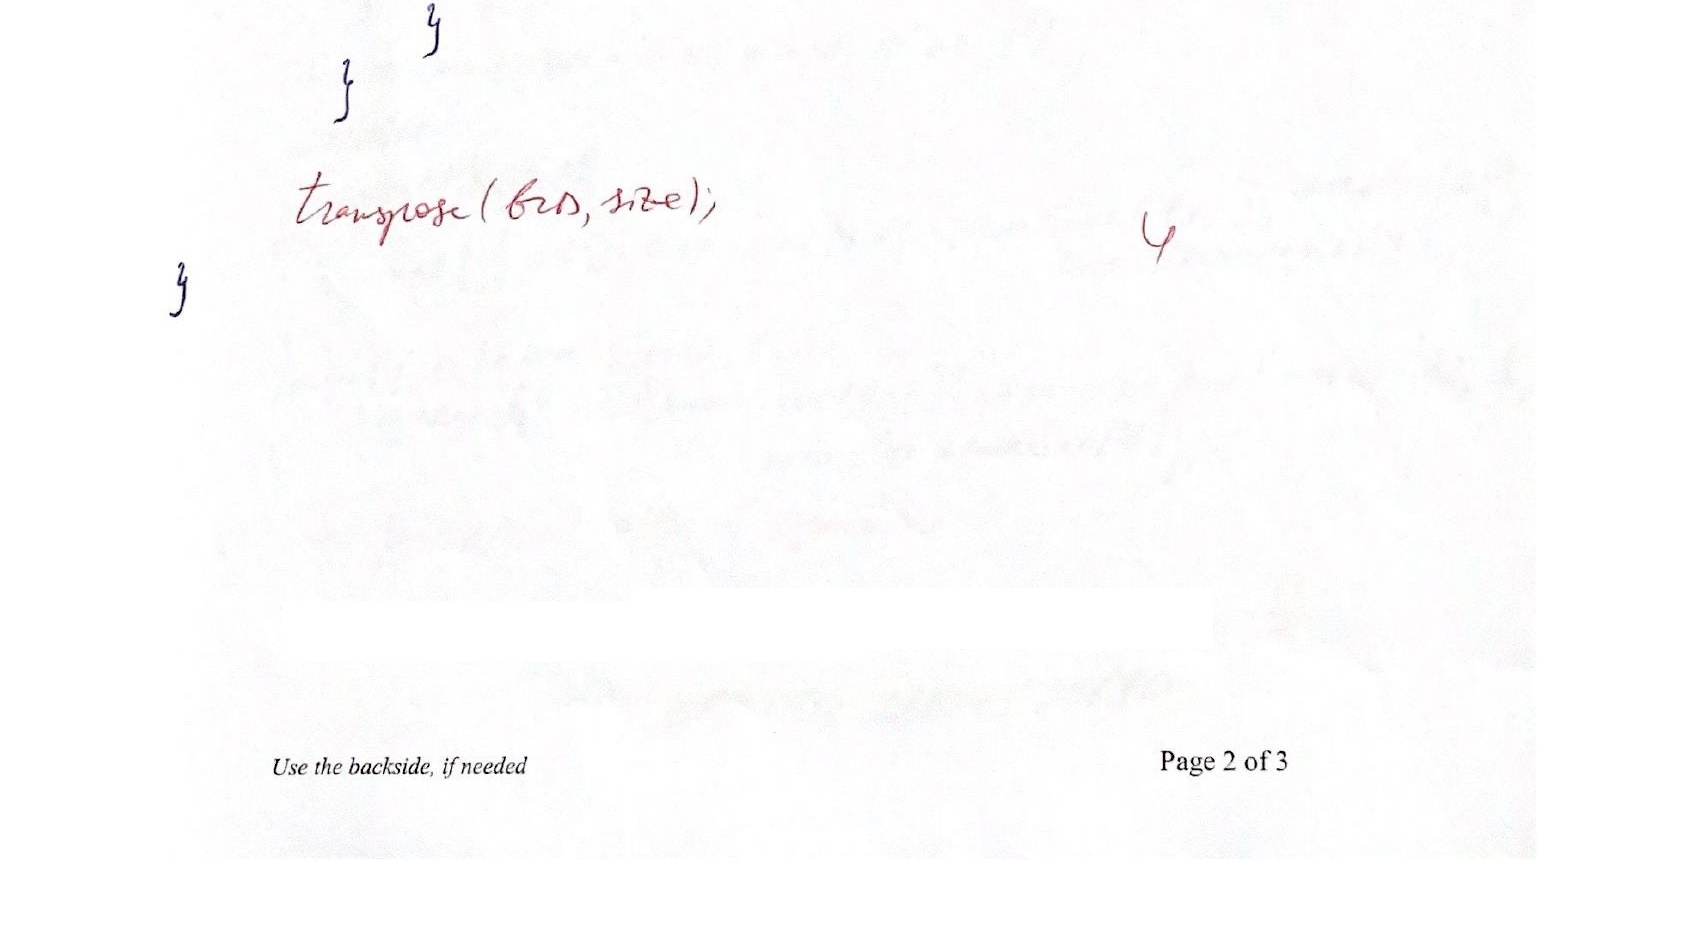 }
}
transpose(
, size);
4
}
Use the backside, if needed
Page 2 of 3